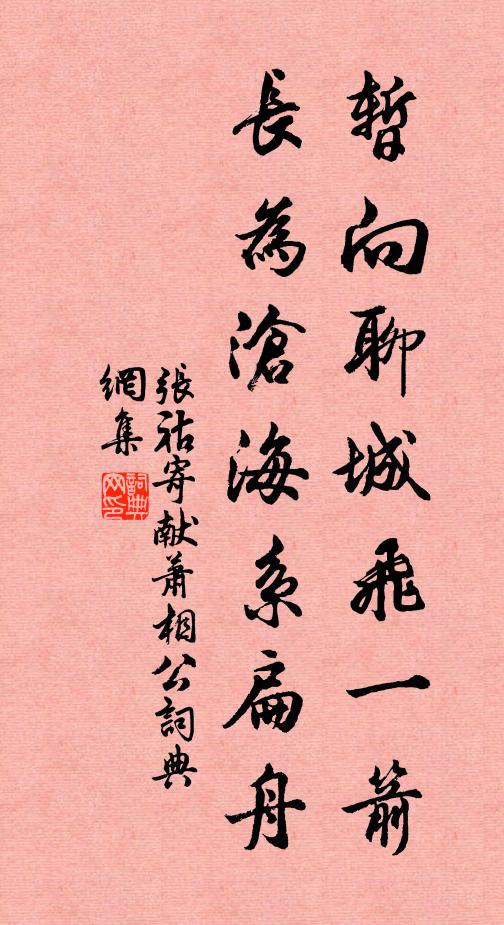 暫向聊城飛一箭
長為滄海系扁舟
張祜寄獻蕭相公詞典
網集
詞典
网印